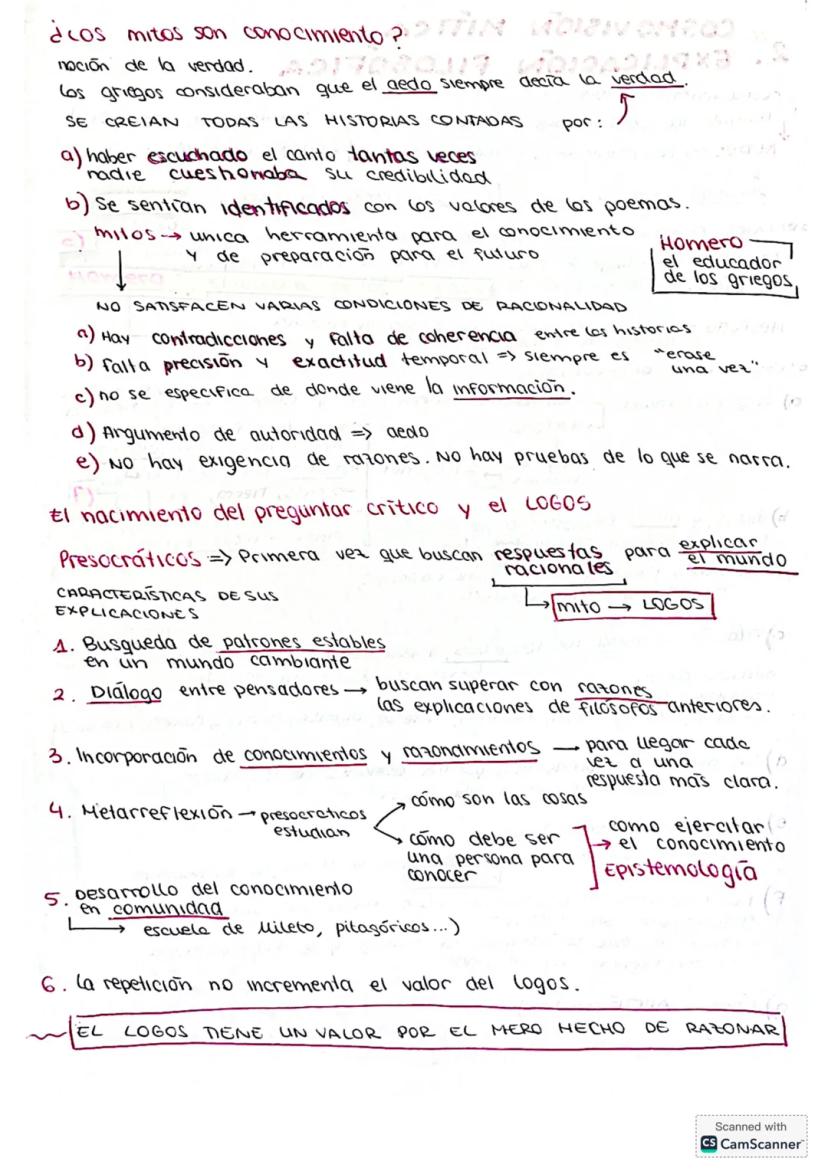 ¿LOS mitos son conocimiento?
noción de la verdad.
Los griegos consideraban que el aedo siempre decía la verdad.
SE CREIAN TODAS LAS HISTORIAS CONTADAS por:
a) haber escuchado el canto tantas veces
nadie cuestionaba su credibilidad
b) Se sentían identificados con los valores de los poemas.
mitos → unica herramienta para el conocimiento
y de preparación para el futuro
Homero
el educador
de los griegos
NO SATISFACEN VARIAS CONDICIONES DE RACIONALIDAD
a) Hay contradicciones y falta de coherencia entre las historias
b) falta precisión y exactitud temporal => siempre es "erase
una vez"
c) no se especifica de dónde viene la información.
d) Argumento de autoridad => aedo
e) NO hay exigencia de razones. No hay pruebas de lo que se narra.
El nacimiento del preguntar crítico y el LOGOS
Presocráticos => Primera vez que buscan respuestas racionales para explicar el mundo
mito → LOGOS
CARACTERÍSTICAS DE SUS
EXPLICACIONES
1. Busqueda de patrones estables
en un mundo cambiante
2. Diálogo entre pensadores → buscan superar con razones
las explicaciones de filósofos anteriores.
3. Incorporación de conocimientos y razonamientos → para llegar cada
vez a una
respuesta más clara.
4. Metarreflexión → presocraticos
estudian
cómo son las cosas
cómo debe ser
una persona para
conocer
como ejercitar
→ el conocimiento
Epistemología
5. Desarrollo del conocimiento
en comunidad
→ escuela de Mileto, pitagóricos...)
6. La repetición no incrementa el valor del logos.
EL LOGOS TIENE UN VALOR POR EL MERO HECHO DE RAZONAR
Scanned with
CS CamScanner